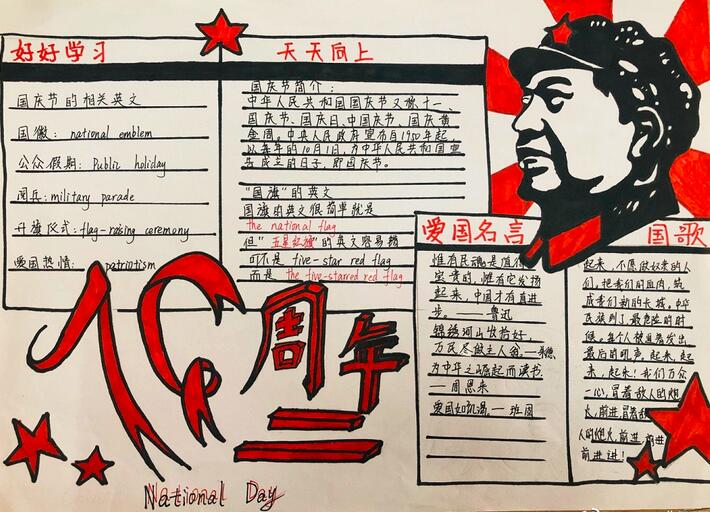 好好学习
天天向上
国庆节的相关英文
国徽: national emblem
公众假期: Public holiday
阅兵: military parade
升旗仪式: flag-raising ceremony
爱国热情: patriotism
国庆节简介:
中华人民共和国国庆节又称十一、
国庆节、国庆日、中国国庆节、国庆黄
金周。中央人民政府宣布自1950年起,
以每年的10月1日,为中华人民共和国宣
告成立的日子,即国庆节。
"国旗"的英文
国旗的英文很简单就是
the national flag
但"五星红旗"的英文容易错
可不是 five-star red flag
而是 the five-starred red flag
爱国名言
惟有民魂是值得
宝贵的,惟有它发扬
起来,中国才有真进
步。——鲁迅
锦绣河山收拾好,
万民尽做主人翁。——朱德
为中华之崛起而读书
——周恩来
爱国如饥渴。——班固
国歌
起来,不愿做奴隶的人
们,把我们的血肉,筑
成我们新的长城,中华
民族到了最危险的时
候,每个人被迫着发出
最后的吼声,起来,起
来,起来!我们万众
一心,冒着敌人的炮
火,前进,冒着敌
人的炮火,前进,前进
前进进!
周年
National Day